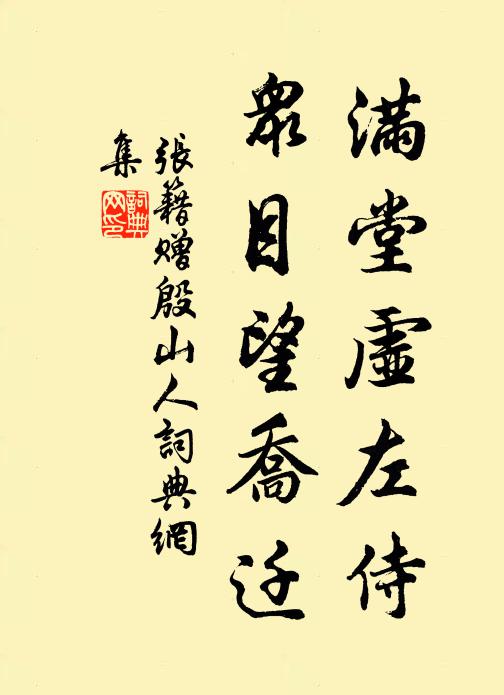 滿堂虛左侍
眾目望喬迁
張籍贈殷山人詞典網
集
詞典
网印